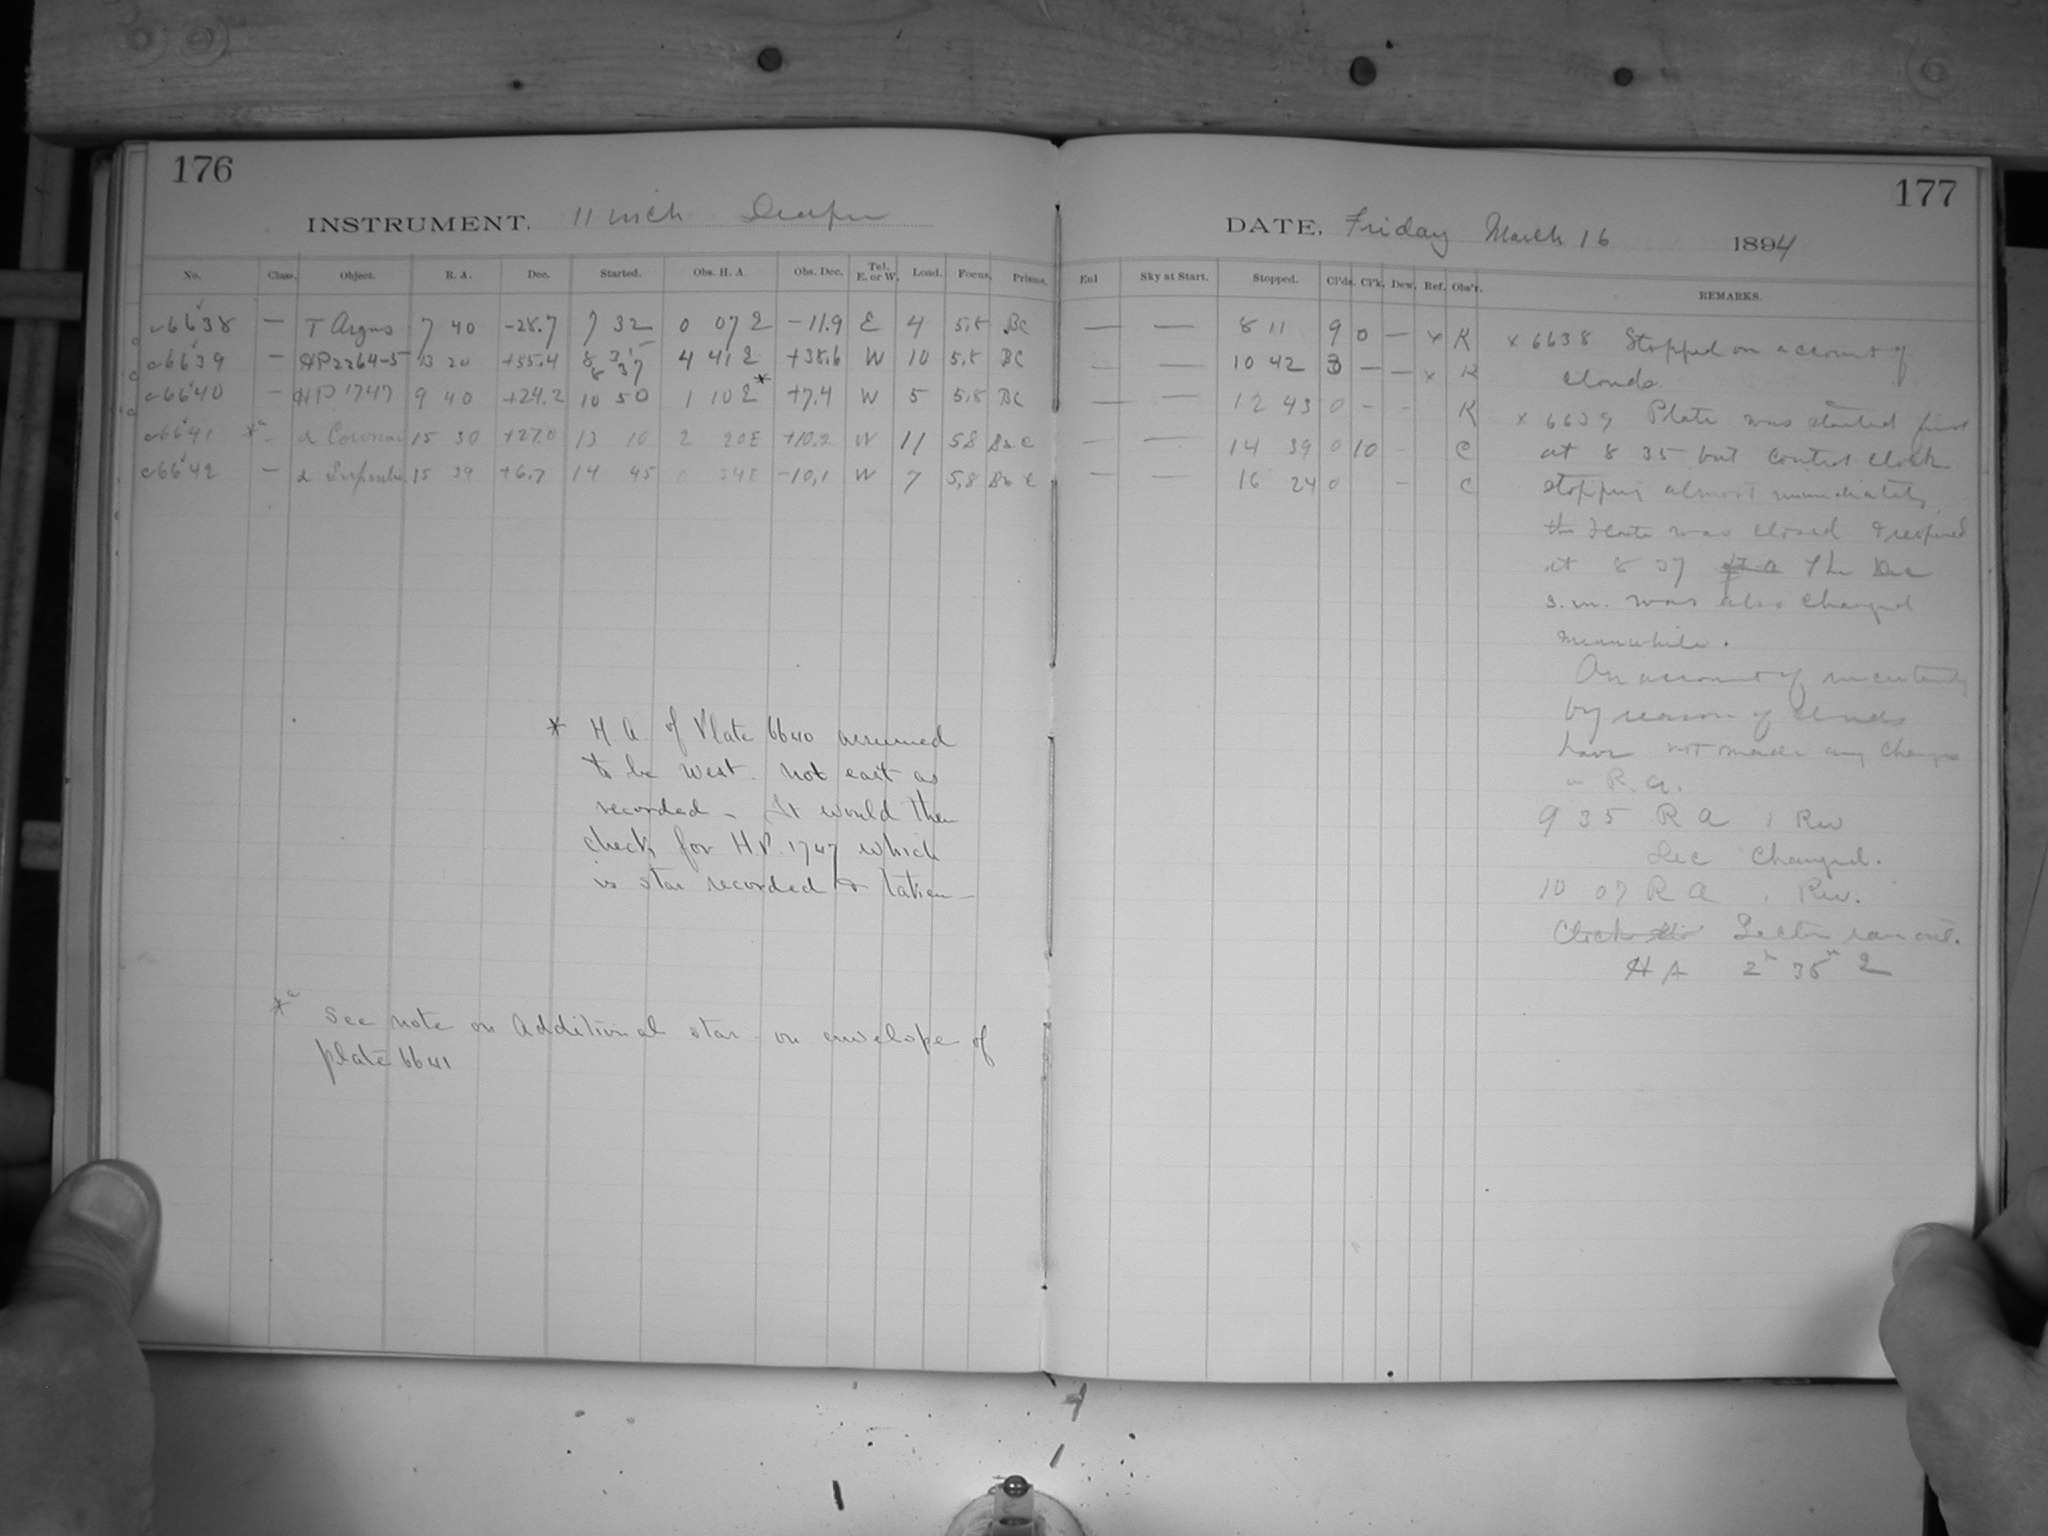 176
INSTRUMENT. 11 inch Draper
No. Class. Object. R. A. Dec. Started. Obs. H. A. Obs. Dec. Tel. E. or W. Load. Focus. Prisms.
c6638 — T Argus 7 40 -28.7 7 32 0 07 E -11.9 E 4 5.8 BC
c6639 — HP2264-5 13 20 +55.4 8 35 8 37 4 41 E +38.6 W 10 5.8 BC
c6640 — HP 1747 9 40 +24.2 10 50 1 10 E* +7.4 W 5 5.8 BC
c6641 *a - α Coronae 15 30 +27.0 13 10 2 20E +10.2 W 11 5.8 C
c6642 — α Serpentis 15 39 +6.7 14 45 0 54E -10.1 W 7 5.8 C
* H A. of Plate 6640 assumed
to be west. not east as
recorded - It would then
check for H.P. 1747 which
is star recorded & taken —
*a See note on Additional star - on envelope of
plate 6641
177
DATE, Friday March 16 1894
Enl Sky at Start. Stopped. Cl'ds. Cl'k. Dew. Ref. Obs'r. REMARKS.
— — 8 11 9 0 — x K
— — 10 42 3 — — x K
— — 12 43 0 - - K
— — 14 39 0 10 - C
— — 16 24 0 - C
x 6638 Stopped on account of
clouds.
x 6639 Plate was started first
at 8 35 but control clock
stopping almost immediately,
the plate was closed & reopened
at 8 37 The Dec
s.m. was also changed
meanwhile.
On account of uncertainty
by reason of clouds
have not made any change
in R.A.
9 35 R A 1 Rev
Dec Changed.
10 07 R A 1 Rev.
Clock Sector ran out.
H A 2h 35m E